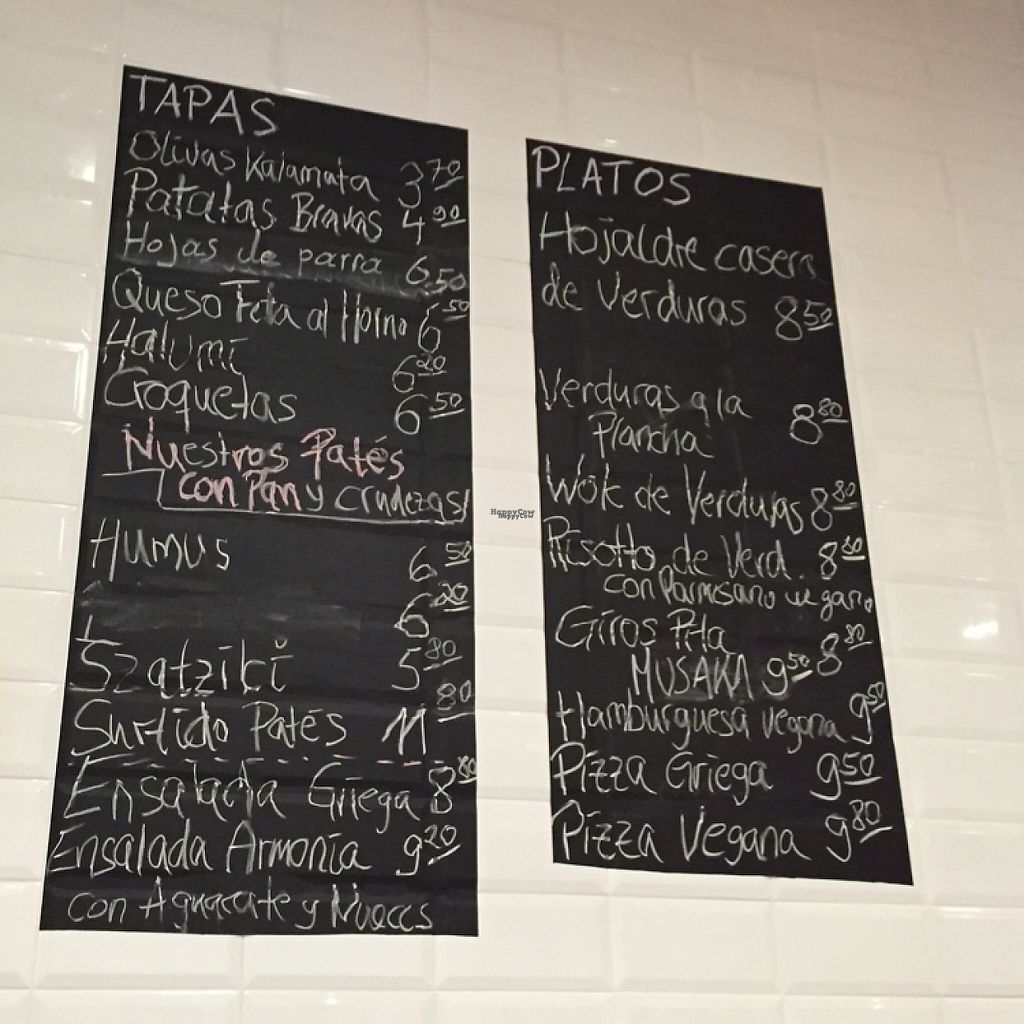 TAPAS
Olivas Kalamata 3.70
Patatas Bravas 4.90
Hojas de parra 6.50
Queso Feta al Horno 6.50
Halumi 6.20
Croquetas 6.50
Nuestros Patés
con Pan y crudezas!
Humus 6.50
6.20
Szatziki 5.80
Surtido Patés 11.80
Ensalada Griega 8.80
Ensalada Armonía 9.20
con Aguacate y Nueces
PLATOS
Hojaldre casero
de Verduras 8.50
Verduras a la
Plancha 8.80
Wok de Verduras 8.80
Risotto de Verd. 8.80
con Parmesano vegano
Giros Pita 8.80
MUSAKA 9.50
Hamburguesa vegana 9.50
Pizza Griega 9.50
Pizza Vegana 9.80
HappyCow
HappyCow